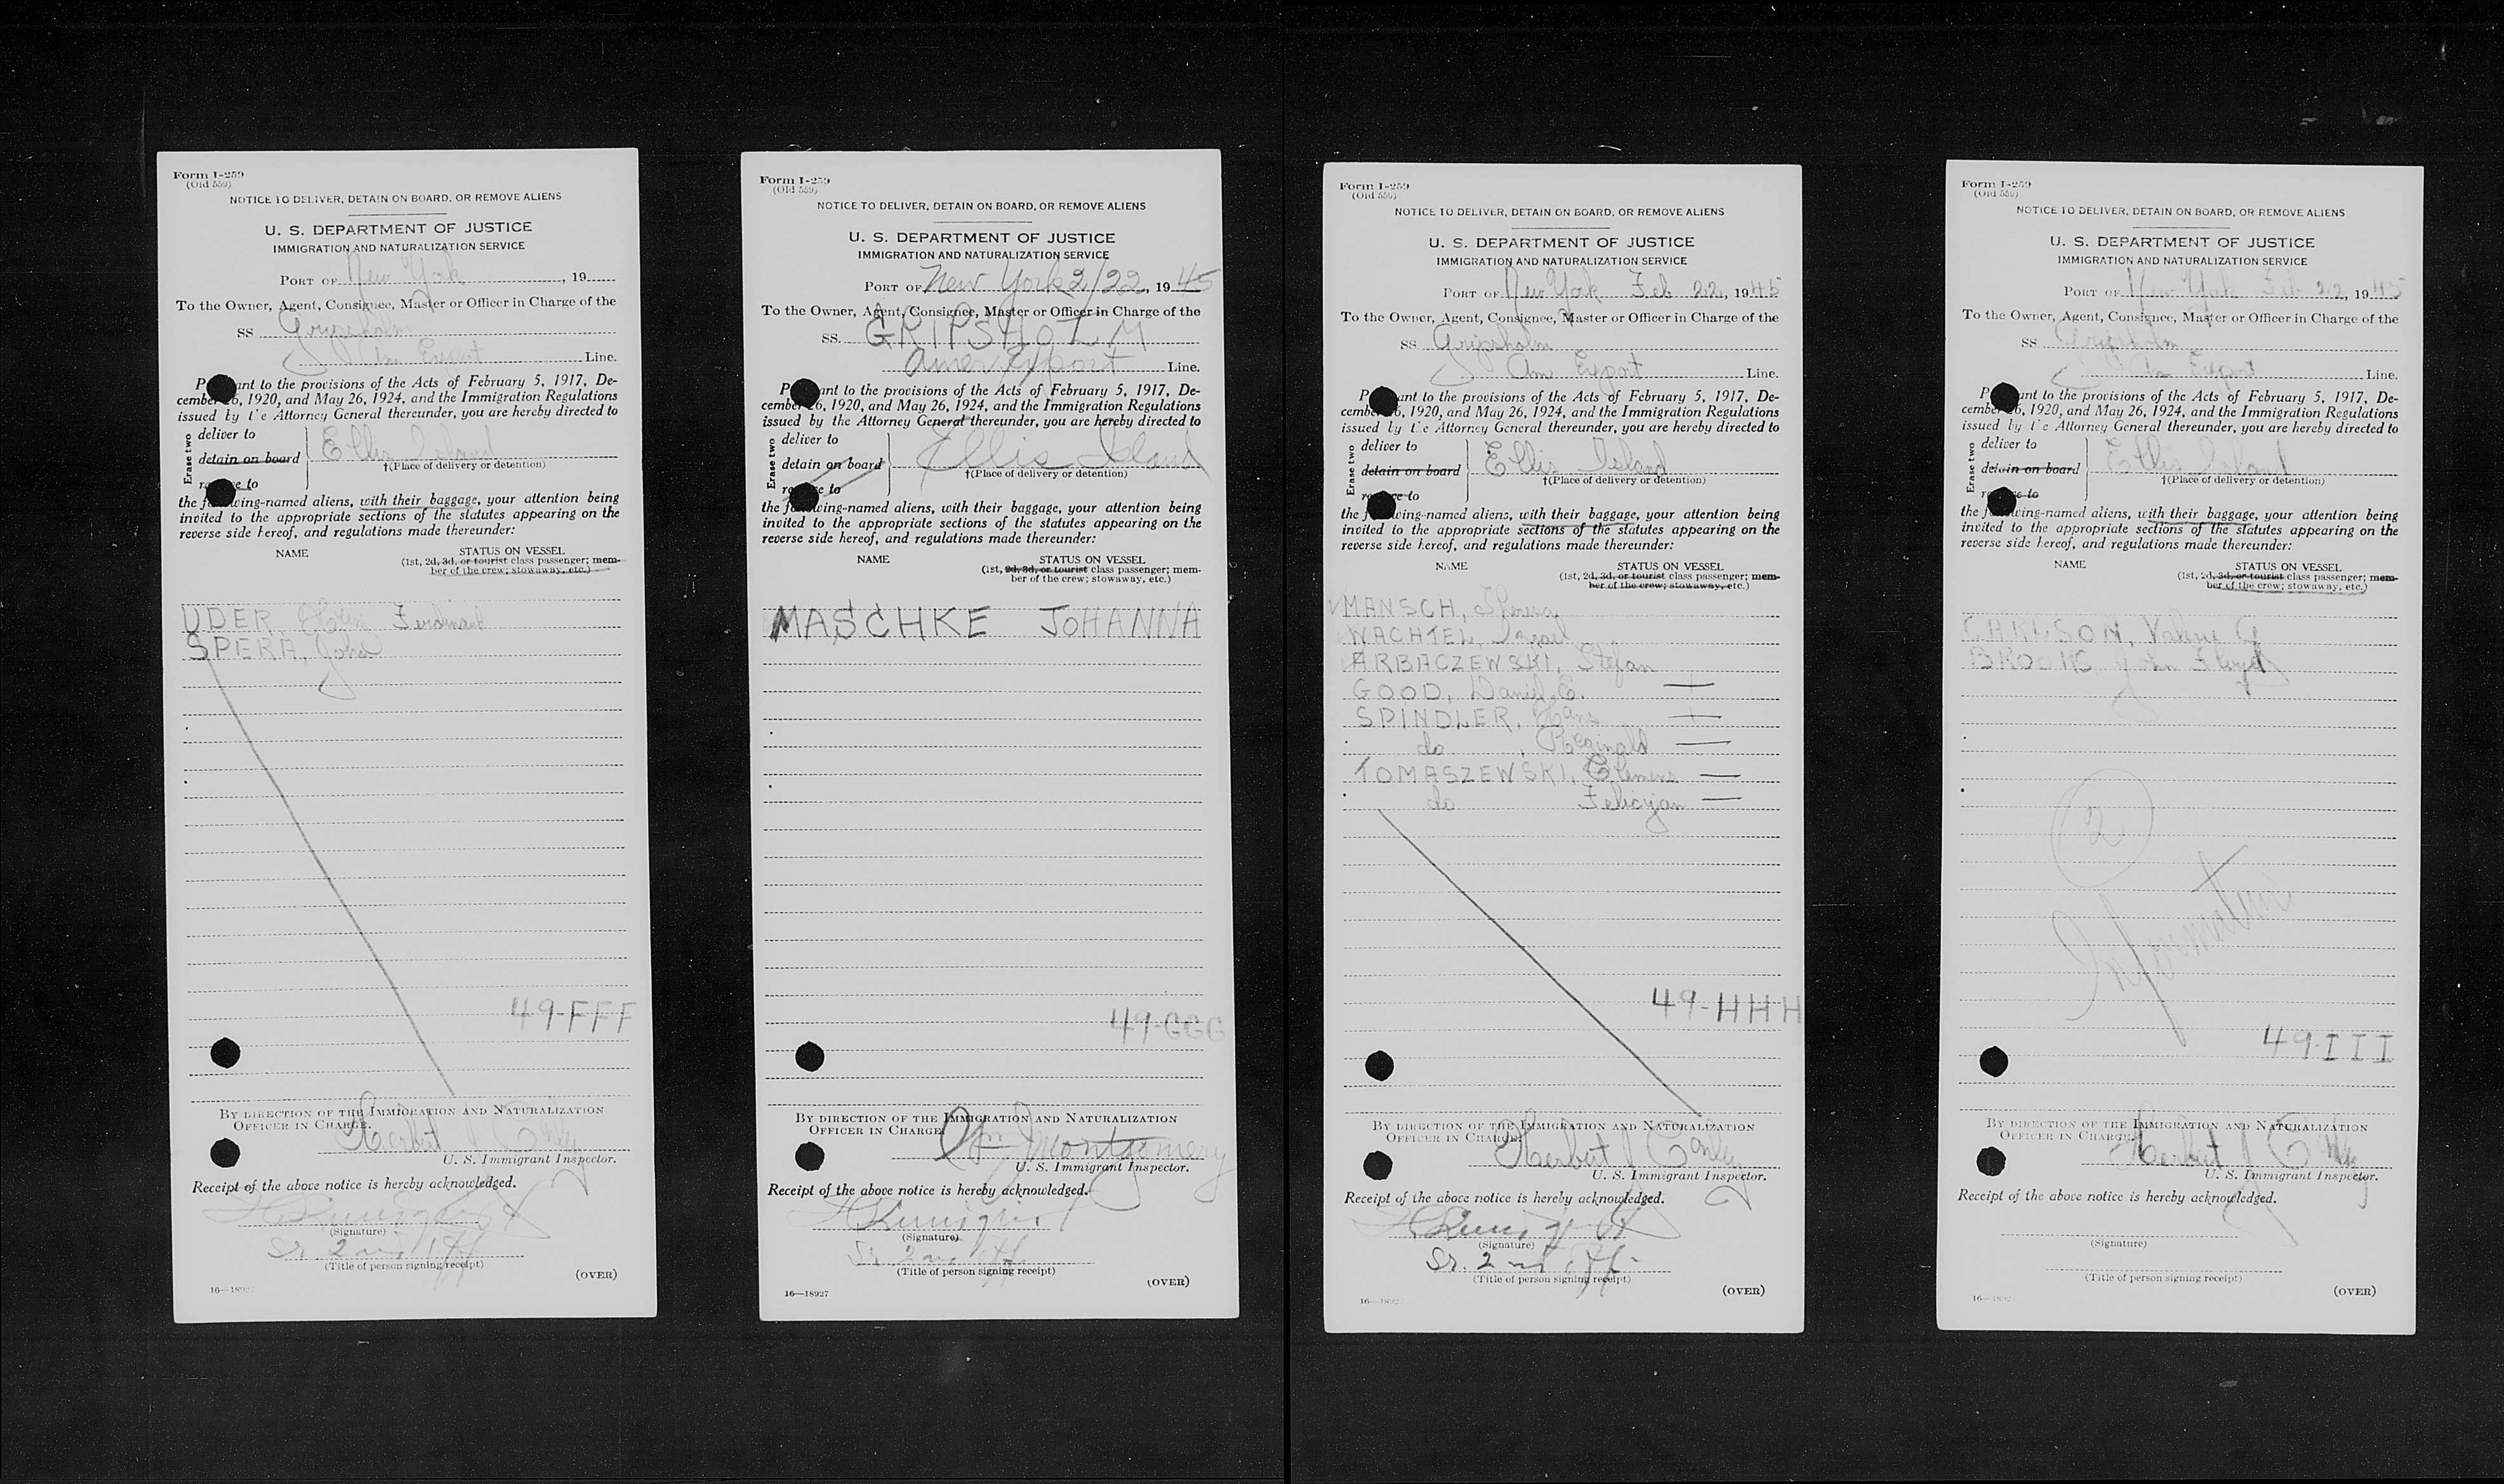 Form I-259
(Old 559)
NOTICE TO DELIVER, DETAIN ON BOARD, OR REMOVE ALIENS
U. S. DEPARTMENT OF JUSTICE
IMMIGRATION AND NATURALIZATION SERVICE
PORT OF New York, 19
To the Owner, Agent, Consignee, Master or Officer in Charge of the
SS Gripsholm
Am Export Line.
ant to the provisions of the Acts of February 5, 1917, De-
cember 26, 1920, and May 26, 1924, and the Immigration Regulations
issued by the Attorney General thereunder, you are hereby directed to
Erase two
deliver to
detain on board
Ellis Island
†(Place of delivery or detention)
to
the following-named aliens, with their baggage, your attention being
invited to the appropriate sections of the statutes appearing on the
reverse side hereof, and regulations made thereunder:
NAME STATUS ON VESSEL
(1st, 2d, 3d, or tourist class passenger; mem-
ber of the crew; stowaway, etc.)
UDER, Ferdinand
SPERA, John
49-FFF
BY DIRECTION OF THE IMMIGRATION AND NATURALIZATION
OFFICER IN CHARGE.
Herbert J
U. S. Immigrant Inspector.
Receipt of the above notice is hereby acknowledged.
(Signature)
Sr. 2nd Off
(Title of person signing receipt)
(OVER)
16—18927
Form I-259
(Old 559)
NOTICE TO DELIVER, DETAIN ON BOARD, OR REMOVE ALIENS
U. S. DEPARTMENT OF JUSTICE
IMMIGRATION AND NATURALIZATION SERVICE
PORT OF New York 2/22, 1945
To the Owner, Agent, Consignee, Master or Officer in Charge of the
SS. GRIPSHOLM
Amer Export Line.
ant to the provisions of the Acts of February 5, 1917, De-
cember 26, 1920, and May 26, 1924, and the Immigration Regulations
issued by the Attorney General thereunder, you are hereby directed to
Erase two
deliver to
detain on board
Ellis Island
†(Place of delivery or detention)
to
the following-named aliens, with their baggage, your attention being
invited to the appropriate sections of the statutes appearing on the
reverse side hereof, and regulations made thereunder:
NAME STATUS ON VESSEL
(1st, 2d, 3d, or tourist class passenger; mem-
ber of the crew; stowaway, etc.)
MASCHKE JOHANNA
49-GGG
BY DIRECTION OF THE IMMIGRATION AND NATURALIZATION
OFFICER IN CHARGE.
Wm J Montgomery
U. S. Immigrant Inspector.
Receipt of the above notice is hereby acknowledged.
(Signature)
Sr. 2nd Off.
(Title of person signing receipt)
(OVER)
16—18927
Form I-259
(Old 559)
NOTICE TO DELIVER, DETAIN ON BOARD, OR REMOVE ALIENS
U. S. DEPARTMENT OF JUSTICE
IMMIGRATION AND NATURALIZATION SERVICE
PORT OF New York Feb 22, 1945
To the Owner, Agent, Consignee, Master or Officer in Charge of the
SS Gripsholm
Am Export Line.
ant to the provisions of the Acts of February 5, 1917, De-
cember 26, 1920, and May 26, 1924, and the Immigration Regulations
issued by the Attorney General thereunder, you are hereby directed to
Erase two
deliver to
detain on board
Ellis Island
†(Place of delivery or detention)
to
the following-named aliens, with their baggage, your attention being
invited to the appropriate sections of the statutes appearing on the
reverse side hereof, and regulations made thereunder:
NAME STATUS ON VESSEL
(1st, 2d, 3d, or tourist class passenger; mem-
ber of the crew; stowaway, etc.)
MANSCH, Theresa
WACHTEL, Israel
ARBACZEWSKI, Stefan
GOOD, Daniel E.
SPINDLER, Hans
do, Reginald
TOMASZEWSKI, Clemens
do Felicyjan
49-HHH
BY DIRECTION OF THE IMMIGRATION AND NATURALIZATION
OFFICER IN CHARGE.
Herbert J
U. S. Immigrant Inspector.
Receipt of the above notice is hereby acknowledged.
(Signature)
Sr. 2nd Off.
(Title of person signing receipt)
(OVER)
16—18927
Form I-259
(Old 559)
NOTICE TO DELIVER, DETAIN ON BOARD, OR REMOVE ALIENS
U. S. DEPARTMENT OF JUSTICE
IMMIGRATION AND NATURALIZATION SERVICE
PORT OF New York Feb 22, 1945
To the Owner, Agent, Consignee, Master or Officer in Charge of the
SS Gripsholm
Am Export Line.
ant to the provisions of the Acts of February 5, 1917, De-
cember 26, 1920, and May 26, 1924, and the Immigration Regulations
issued by the Attorney General thereunder, you are hereby directed to
Erase two
deliver to
detain on board
Ellis Island
†(Place of delivery or detention)
to
the following-named aliens, with their baggage, your attention being
invited to the appropriate sections of the statutes appearing on the
reverse side hereof, and regulations made thereunder:
NAME STATUS ON VESSEL
(1st, 2d, 3d, or tourist class passenger; mem-
ber of the crew; stowaway, etc.)
CARLSON, Valerie G
John Floyd
2
Information
49-III
BY DIRECTION OF THE IMMIGRATION AND NATURALIZATION
OFFICER IN CHARGE.
Herbert J
U. S. Immigrant Inspector.
Receipt of the above notice is hereby acknowledged.
(Signature)
(Title of person signing receipt)
(OVER)